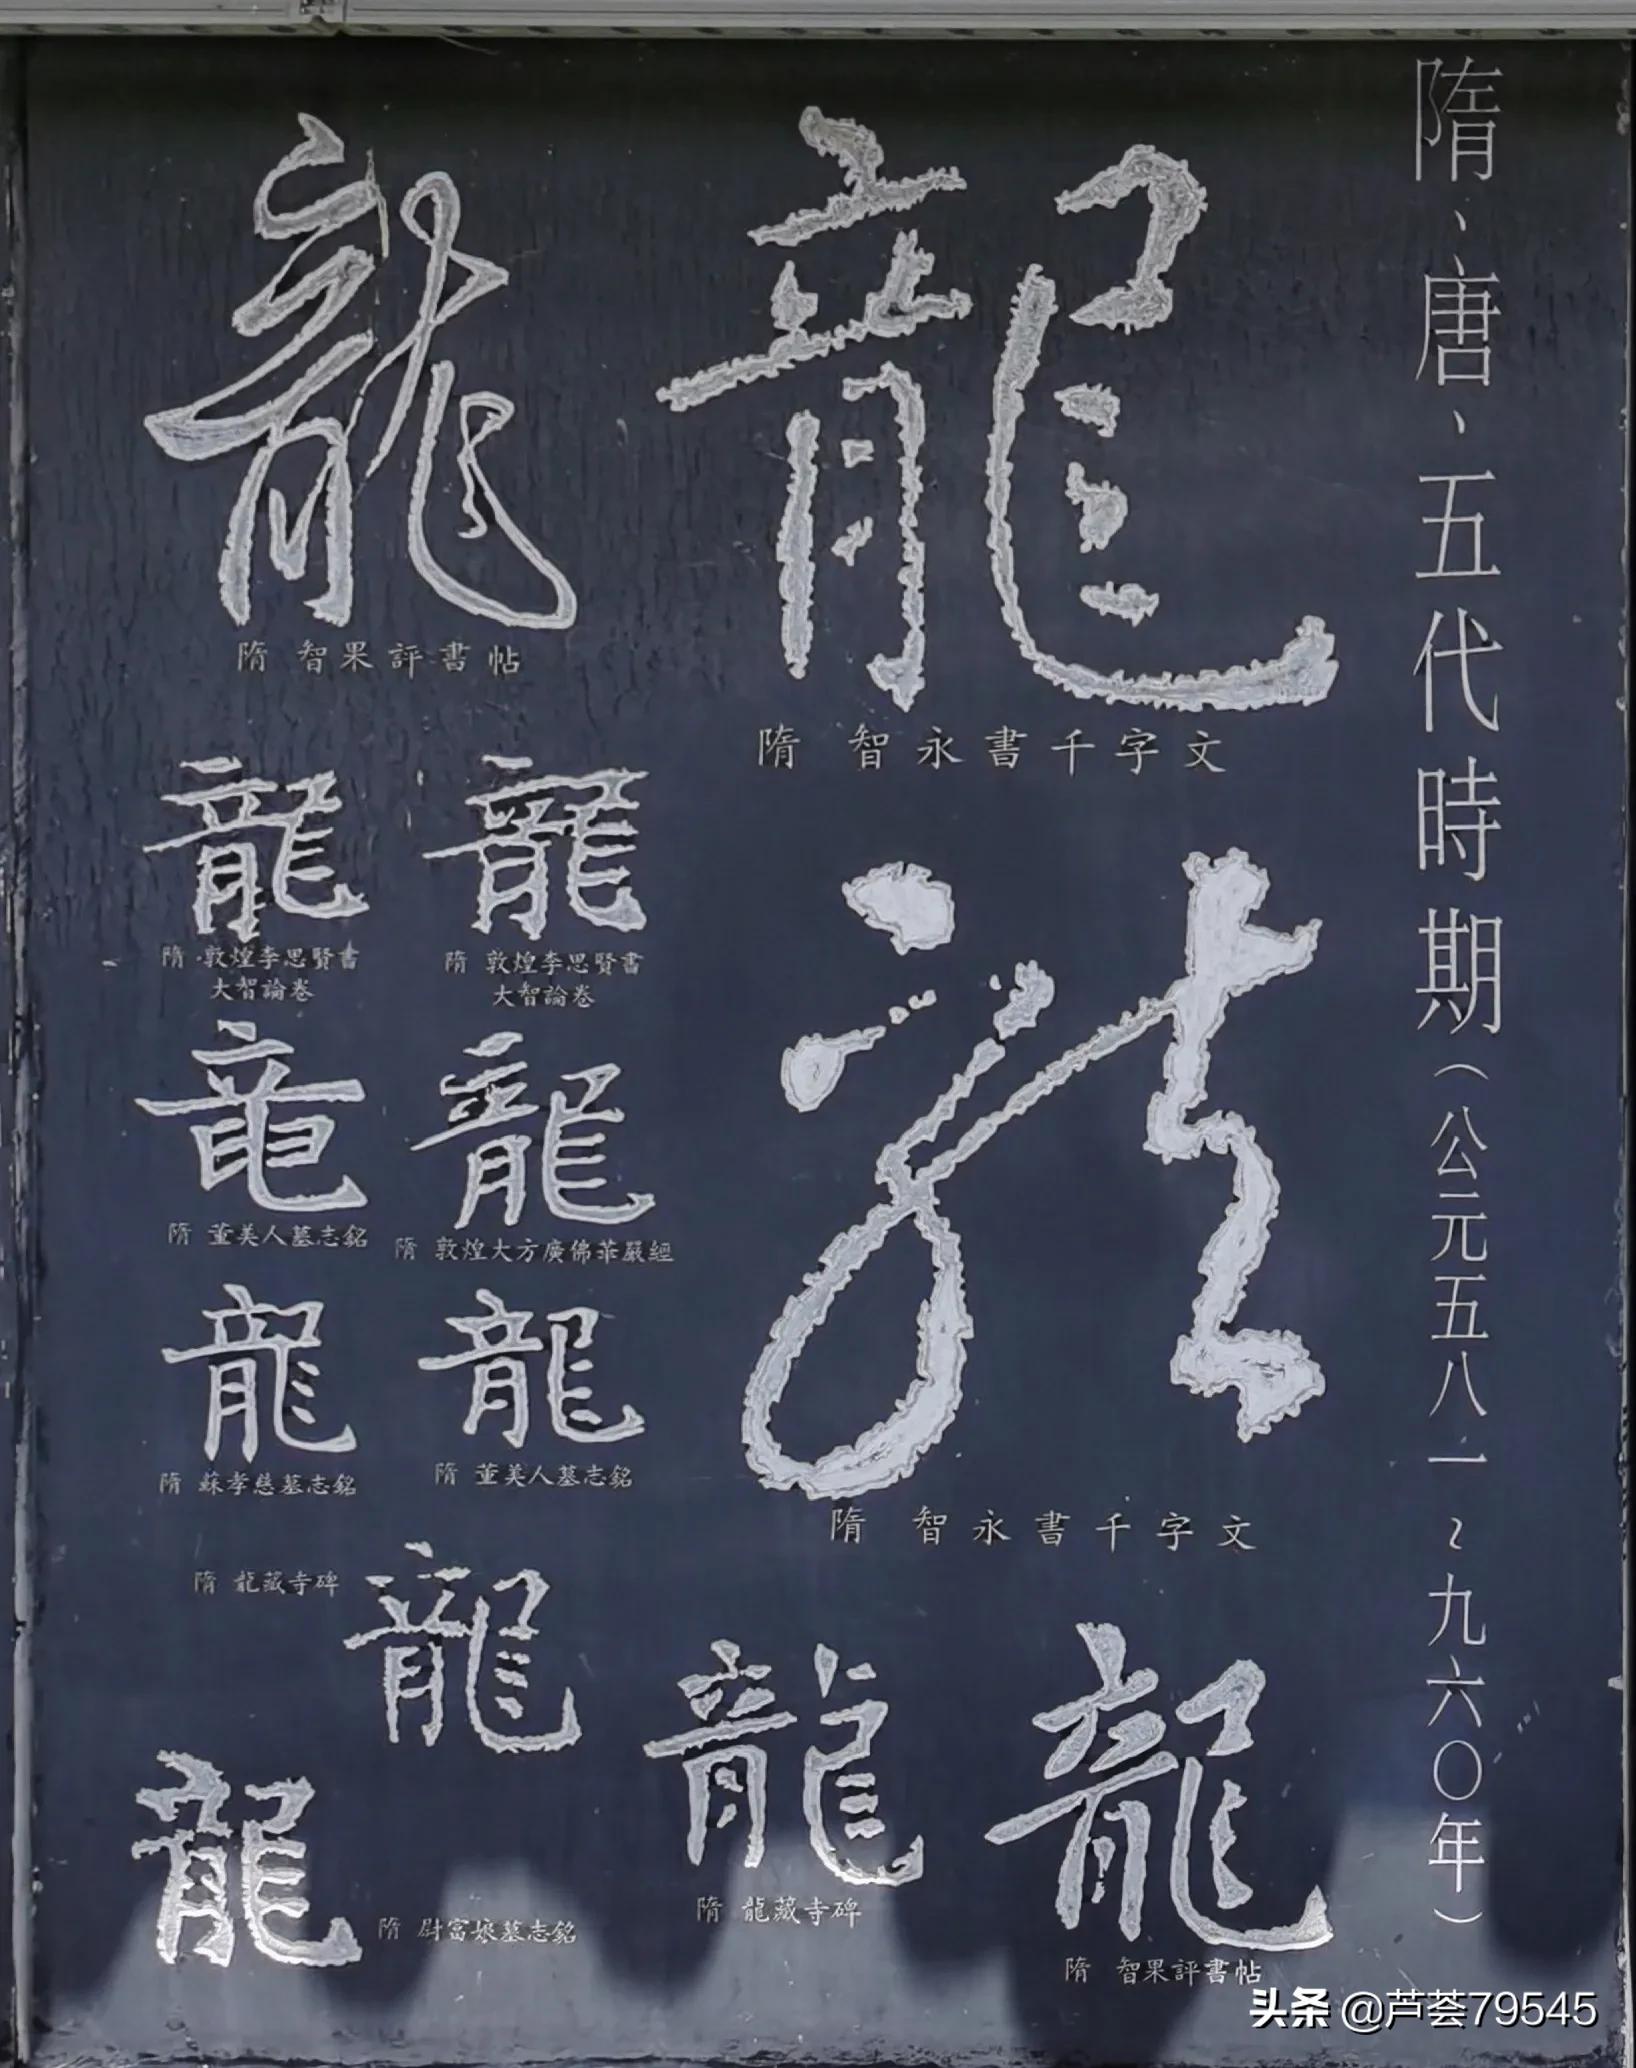 隋、唐、五代時期（公元五八一～九六〇年）
龍
隋 智永書千字文
龍
隋 智果評書帖
龍
隋 敦煌李思賢書
大智論卷
龍
隋 敦煌李思賢書
大智論卷
龍
隋 智永書千字文
竜
隋 董美人墓志銘
龍
隋 敦煌大方廣佛華嚴經
龍
隋 蘇孝慈墓志銘
龍
隋 董美人墓志銘
隋 龍藏寺碑
龍
龍
隋 尉富娘墓志銘
龍
隋 龍藏寺碑
龍
隋 智果評書帖
头条 @芦荟79545